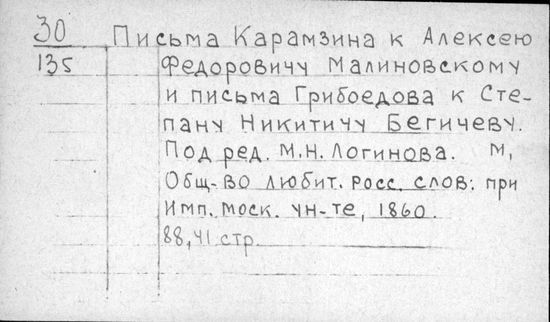 30 Письма Карамзина к Алексею
135 Федоровичу Малиновскому
и письма Грибоедова к Сте-
пану Никитичу Бегичеву.
Под ред. М.Н. Логинова. М,
Общ-во любит. росс. слов. при
Имп. моск. ун-те, 1860.
88,41 стр.